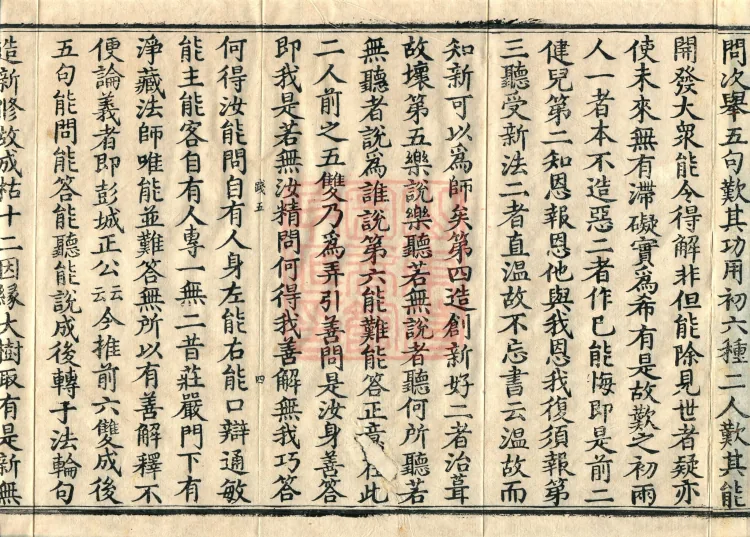 問次舉五句歎其功用初六種二人歎其能
開發大衆能令得解非但能除見世者疑亦
使未來無有滯礙實爲希有是故歎之初兩
人一者本不造惡二者作已能悔即是前二
健兒第二知恩報恩他與我恩我復須報第
三聽受新法二者直温故不忘書云温故而
知新可以爲師矣第四造創新好二者治葺
故壞第五樂說樂聽若無說者聽何所聽若
無聽者說爲誰說第六能難能答正意在此
二人前之五雙乃爲弄引善問是汝身善答
即我是若無汝精問何得我善解無我巧答
踐五 四
何得汝能問自有人身左能右能口辯通敏
能主能客自有人專一無二昔莊嚴門下有
淨藏法師唯能並難答無所以有善解釋不
便論義者即彭城正公云云今推前六雙成後
五句能問能答能聽能說成後轉于法輪句
造新修故成枯十二因緣大樹取有是新無